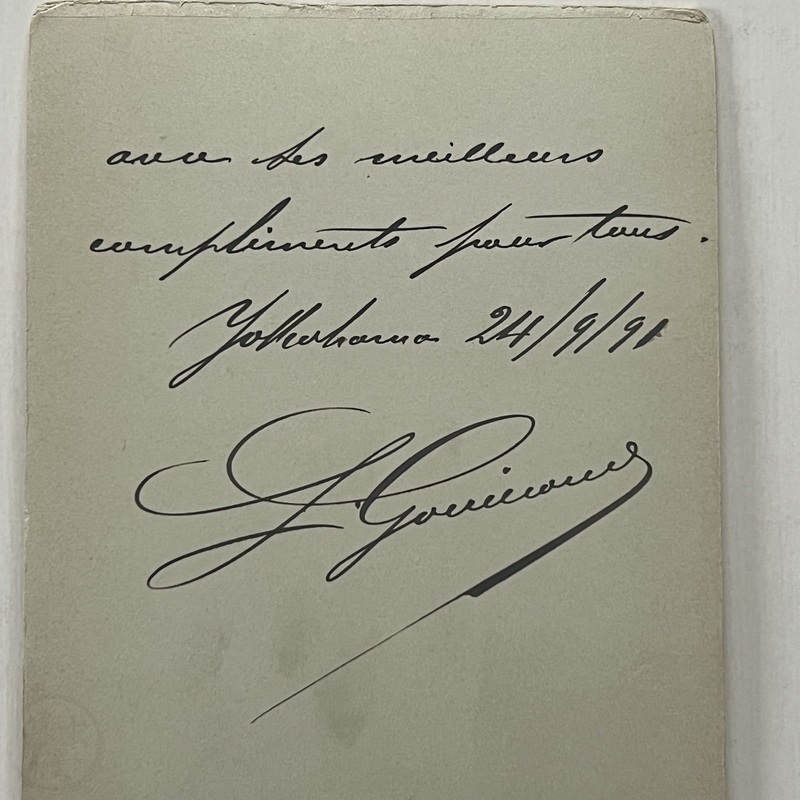 avec ses meilleurs
compliments pour tous.
Yokohama 24/9/91